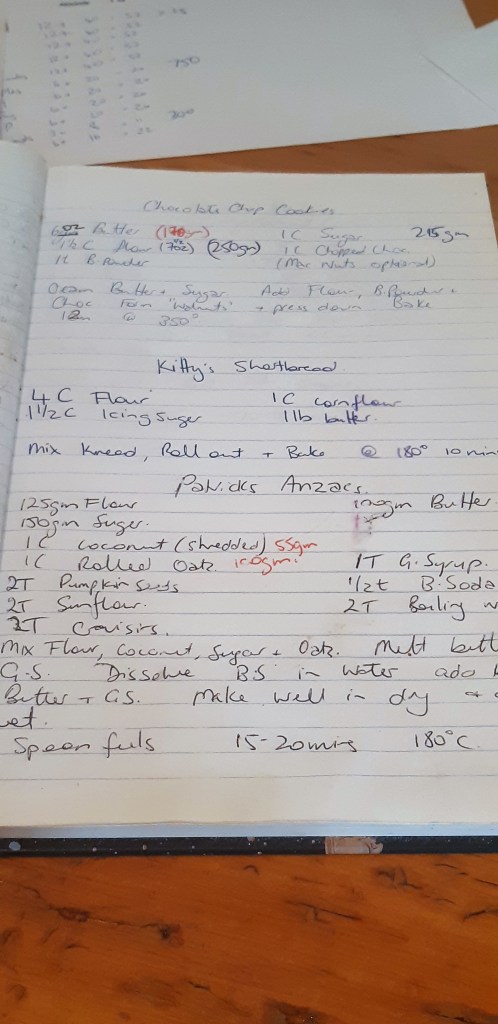 750
200
Chocolate Chop Cookies
6oz Butter (170gm) 1C Sugar 215gm
1½C flour (7½oz) (250gm) 1C Chopped Choc
B Powder (Mix Nuts optional)
Cream Butter + Sugar Add Flour, B.Powder +
Choc Form 'walnuts' + press down Bake
@ 350°
Kitty's Shortbread
4C Flour 1C cornflour
1½C Icing Suger 1lb butter.
Mix Knead, Roll out + Bake @ 180° 10 min
Patricks Anzacs.
125gm Flour Butter.
150gm Suger.
1C coconut (shredded) 55gm
1C Rolled Oatz. 100gm. 1T G.Syrup.
2T Pumpkin Seeds 1/2t B.Soda
2T Sunflour. 2T Boiling w
2T Craisins.
Mix Flour, Coconut, Sugar + Oatz. Melt butt
G.S. Dissolve BS in water add
Butter + G.S. Make well in dry +
wet.
Spoon fuls 15-20mins 180°C.